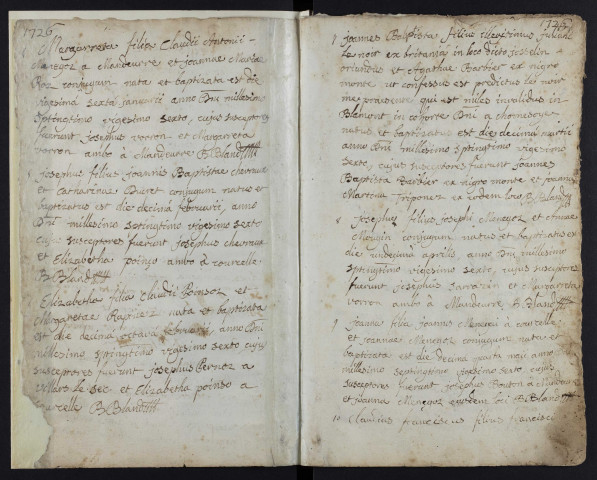 1726
Margarreta filia Claudii Antonii
Menegoz a Mandeurre et joannae Mariae
Roz conjugum nata et baptizata est die
vigesima sexta januarii anno Dni millesimo
septingtimo vigesimo sexto, cujus susceptores
fuerunt josephus vorron et Margareta
vorron ambo a Mandeurre B. Bland
josephus filius joannis Baptistae chevraux
et Catharinae Biaret conjugum natus et
baptizatus est die decima februarii, anno
Dni millesimo septingtimo vigesimo sexto
cujus susceptores fuerunt josephus chevraux
et Elizabetha poinso ambo a courcelle
B. Bland
Elizabetha filia Claudii Poinsoz et
Margaretae Rapriez nata et baptizata
est die decima octava februarii anno Dni
millesimo septingtimo vigesimo sexto cujus
susceptores fuerunt josephus Pernoz a
villars le sec et Elizabetha poinso a
courcelle B. Bland
1726
joannes Baptista filius illegitimus juliani
le noir ex britania in loco dicto joscelin
oriundus et Agathae Barbier ex nigro
monte ut confessus est predictus le noir
me praesente qui est miles invalidus in
Blamont in cohorte Dni a
natus et baptizatus est die decima martii
anno Dni millesimo septingtimo vigesimo
sexto, cujus susceptores fuerunt joannes
Baptista Barbier ex nigro monte et joanna
Martina Triponez ex eodem loco B. Bland
8 josephus filius josephi Menegoz et Annae
Mougin conjugum natus et baptizatus est
die undecima aprilis anno Dni millesimo
septingtimo vigesimo sexto, cujus susceptores
fuerunt josephus Sarazin et Margareta
vorron ambo a Mandeurre B. Bland
9 joanna filia joannis Mercier a courcelle
et joannae Menegoz conjugum nata et
baptizata est die decima quarta maii anno
millesimo septingtimo vigesimo sexto cujus
susceptores fuerunt josephus Bouton a Mandeurre
et joanna Menegoz ejusdem loci B. Bland
10 Claudius franciscus filius francisci